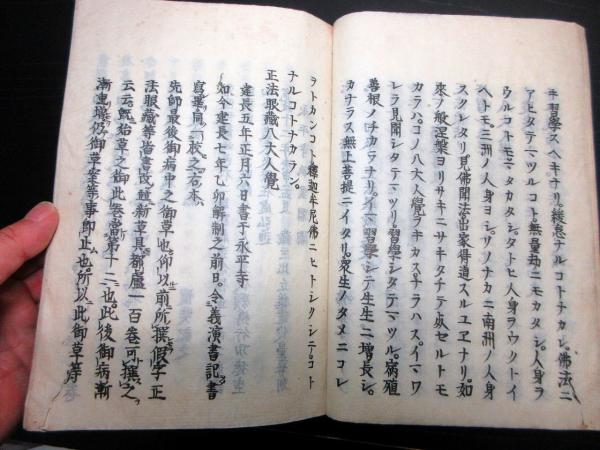 キ習學スヘキナリ。緩怠ナルコトナカレ。佛法ニ
アヒタテマツルコト。無量劫ニモカタシ。人身ヲ
ウルコトモマタカタシ。タトヒ人身ヲウクトイ
ヘトモ。三洲ノ人身ヨシ。ソノナカニ南洲ノ人身
スクレタリ見佛聞法出家得道スルユヱナリ。如
來ノ般涅槃ヨリサキニサキタチテ死セルトモ
カラハ。コノ八大人覺ヲキカスナラハス。イマワ
レラ見聞シタテマツリ。習學シタテマツル。宿殖
善根ノチカラナリ。イマ習學シテ生生ニ增長シ。
カナラス無上菩提ニイタリ。衆生ノタメニコレ
ヲトカンコト釋迦牟尼佛ニヒトシクシテ。コト
ナルコトナカラン。
正法眼藏八大人覺
建長五年正月六日書于永平寺
如今建長七年乙卯解制之前日。令義演書記書
寫畢。同一校之。右本。
先師最後御病中之御草也。仰以前所撰假字正
法眼藏等皆書改。并新草具。都盧一百卷可撰之
云云。既始草之御此卷。當第十二也。此後御病漸
漸重增。仍御草案等事即止也。所以此御草等